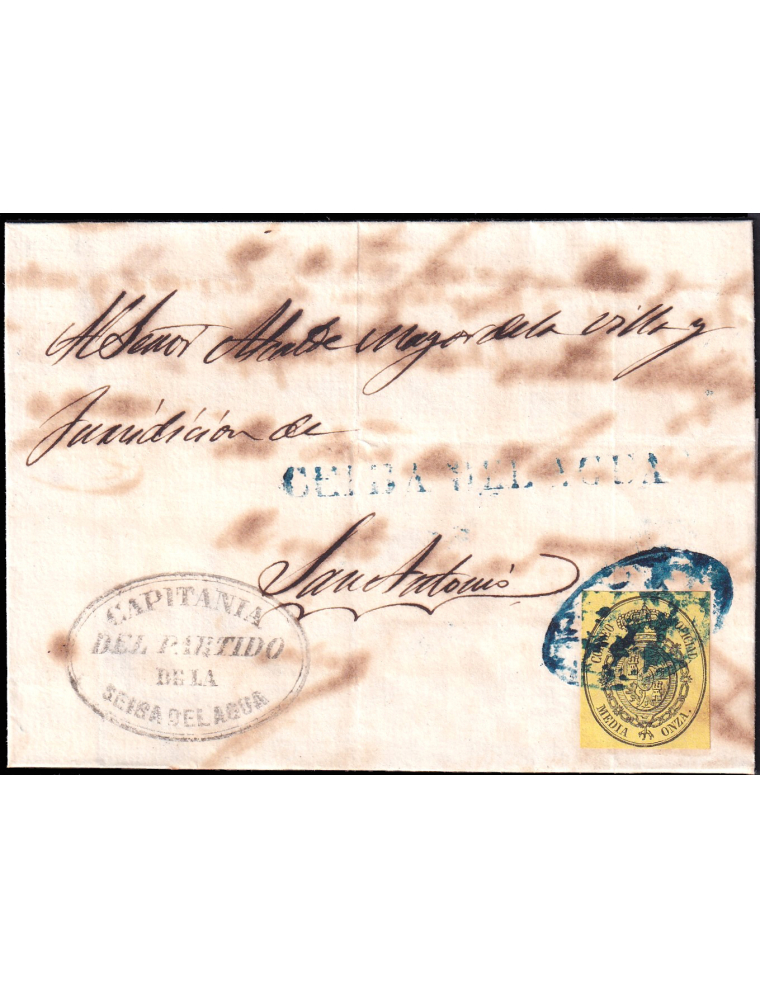 Al Señor Alcalde Mayor de la Villa y
Juridición de
CEIBA DEL AGUA
San Antonio
CAPITANIA
DEL PARTIDO
DE LA
SEIBA DEL AGUA
CORREO OFICIAL
MEDIA ONZA.